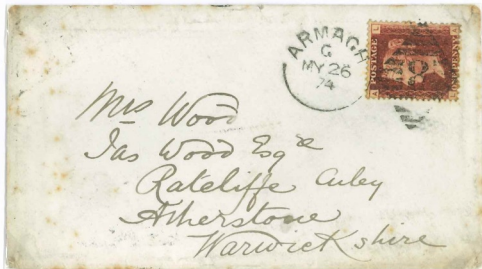 ARMAGH
G
MY 26
74
POSTAGE
Mrs Wood
Jas Wood Esqre
Ratcliffe Culey
Atherstone
Warwickshire